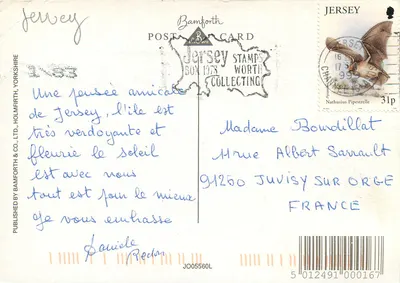 Jersey
Bamforth
POST CARD
Jersey
BOX 1978
STAMPS
WORTH
COLLECTING
JERSEY
Nathusius Pipistrelle
31p
Une pensée amicale
de Jersey, l'ile est
très verdoyante et
fleurie le soleil
est avec nous
tout est pour le mieux
je vous embrasse
Daniele
Madame Bourdillat
11 rue Albert Sarrault
91260 JUVISY SUR ORGE
FRANCE
PUBLISHED BY BAMFORTH & CO. LTD., HOLMFIRTH, YORKSHIRE
JO05560L
5 012491 000167